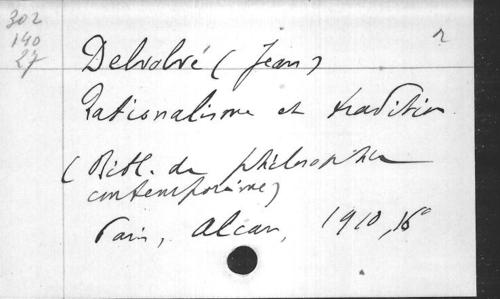 302
140
27
2
Delvolvé (Jean)
Rationalisme et tradition
(Bibl. de philosophie
contemporaine)
Paris, Alcan, 1910, 16°